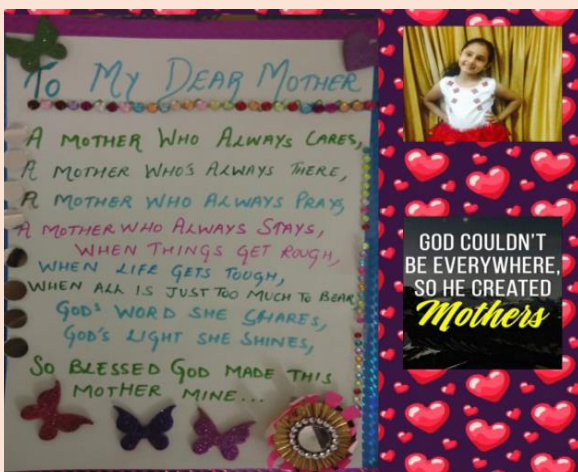 To My DEAR MOTHER
A MOTHER WHO ALWAYS CARES,
A MOTHER WHO'S ALWAYS THERE,
A MOTHER WHO ALWAYS PRAYS,
A MOTHER WHO ALWAYS STAYS,
WHEN THINGS GET ROUGH,
WHEN LIFE GETS TOUGH,
WHEN ALL IS JUST TOO MUCH TO BEAR
GOD'S WORD SHE SHARES,
GOD'S LIGHT SHE SHINES,
SO BLESSED GOD MADE THIS
MOTHER MINE...
GOD COULDN'T
BE EVERYWHERE,
SO HE CREATED
Mothers